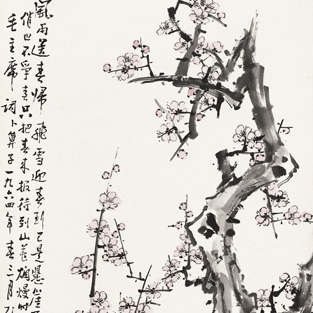 風雨送春歸飛雪迎春到已是懸崖
俏也不爭春只把春來報待到山花爛熳時
毛主席詞卜算子一九六四年春三月